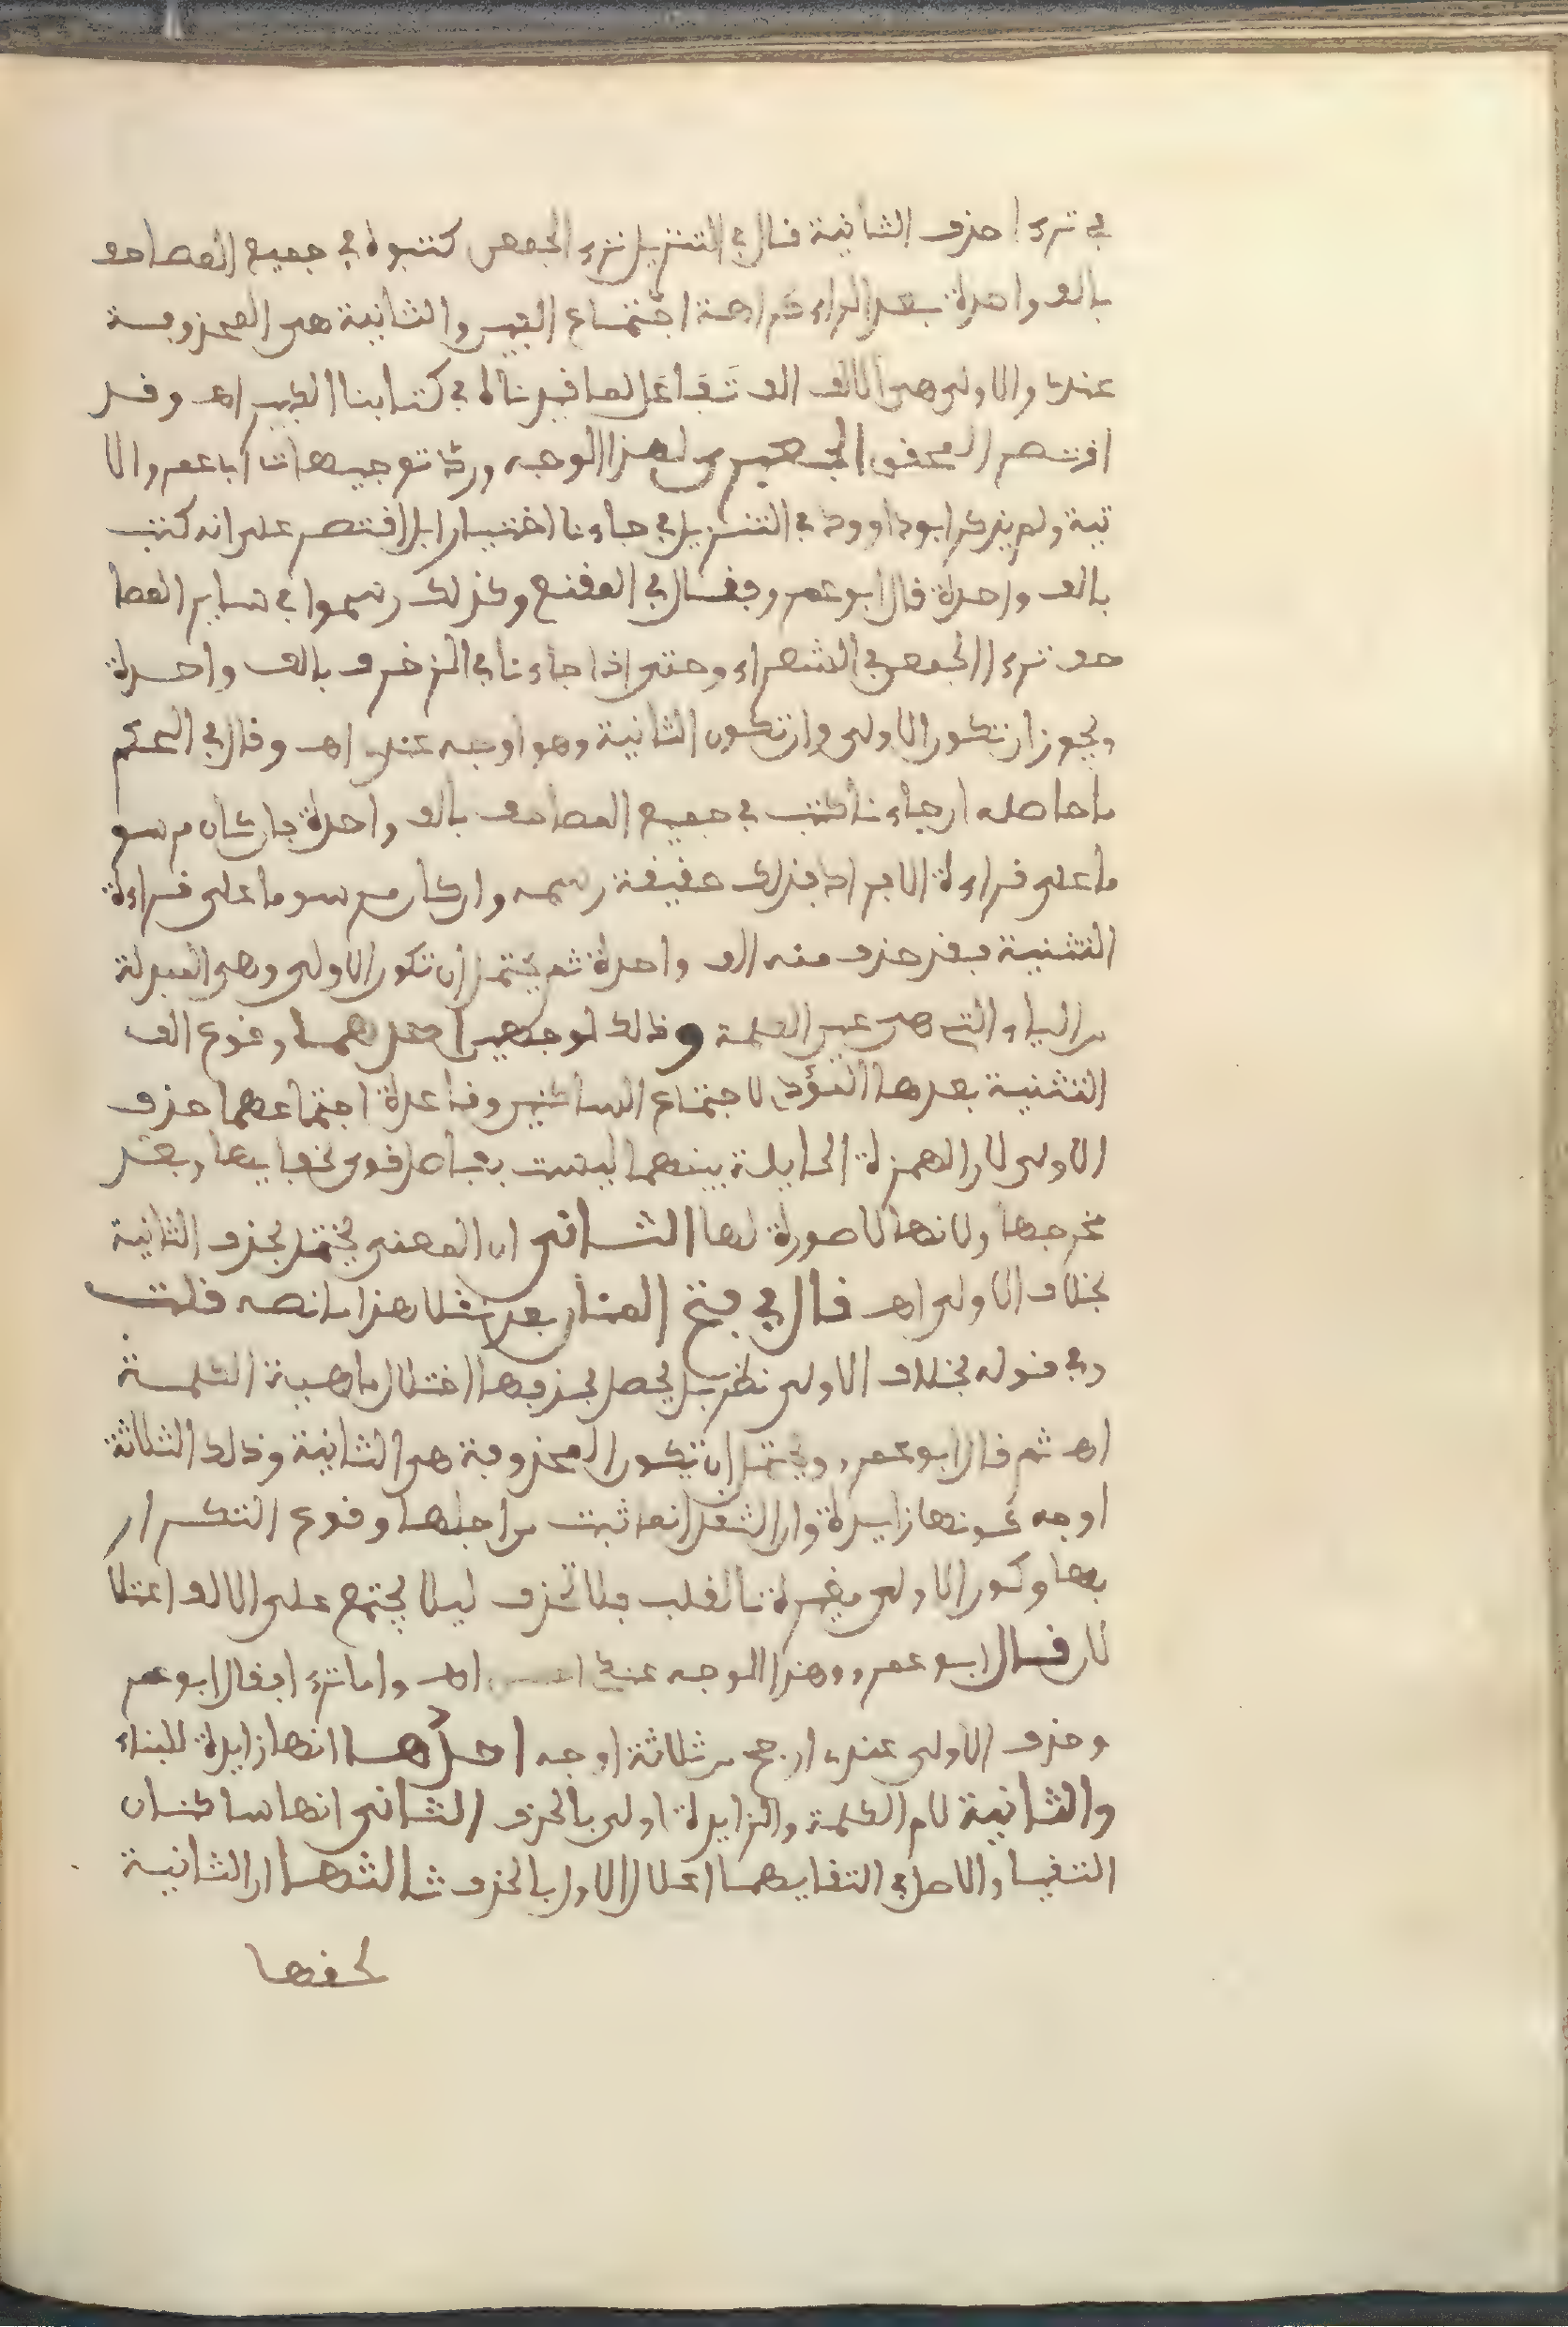 في ترءا حذف الثانية قال في التنزيل ترء الجمعن كتبوه في جميع المصاحف
بالف واحدة بعد الراء كراهة اجتماع الفين والثانية هي المحذوفة
عندي والاولى هي الالف الف تَفَاعَل لما قيدناه في كتابنا الكبير اهـ وقد
اقتصر المحقق الجعبري لهذا الوجه ورد توجيهات ابا عمرو الا
تية ولم يذكر ابو داوود في التنزيل في جاءنا اختيارا بل اقتصر على انه كتب
بالف واحدة قال ابو عمرو فقال في المقنع وكذلك رسموا في ساير المصا
حف ترءا الجمعن في الشعراء وحتى اذا جاءنا في الزخرف بالف واحدة
ويجوز ان تكون الاولى وان تكون الثانية وهو اوجه عندي اهـ وقال في المحكم
ما حاصله ان جاءنا كتب في جميع المصاحف بالف واحدة فان كان مرسو
ما على قراءة الافراد فذلك حقيقة رسمه وان كان مرسوما على قراءة
التثنية فقد حذف منه الف واحدة ثم يحتمل ان تكون الاولى وهي المبدلة
من الياء التي هي عين الكلمة وذلك لوجهين احدهما وقوع الف
التثنية بعدها المؤد لاجتماع الساكنين وقاعدة اجتماعهما حذف
الاولى لان الهمزة الحايلة بينهما ليست بفاصل قوى لخفايها وبعد
مخرجها ولانها لا صورة لها الثاني ان المعنى يختل بحذف الثانية
بخلاف الاولى اهـ قال في فتح المنان بعد نقل هذا ما نصه قلت
وفي قوله بخلاف الاولى نظر بل يحصل بحذفها اختلال ماهية الكلمة
اهـ ثم قال ابو عمرو ويحتمل ان تكون المحذوفة هي الثانية وذلك لثلاثة
اوجه كونها زايدة وان الثقل انما ثبت من اجلها وقوع التكرار
بها وكون الاولى مغيرة بالقلب فلا تحذف ليلا يجتمع على الالف اعتلا
لان قال ابو عمرو وهذا الوجه عندي اهـ واما ترءا فقال ابو عمر
وحذف الاولى عندي ارجح من ثلاثة اوجه احدُها انها زايدة للبناء
والثانية لام الكلمة والزايدة اولى بالحذف الثاني انها ساكنان
التقيا والاصل في التقايهما اعلال الاول بالحذف ثالثها ان الثانية
لحقها